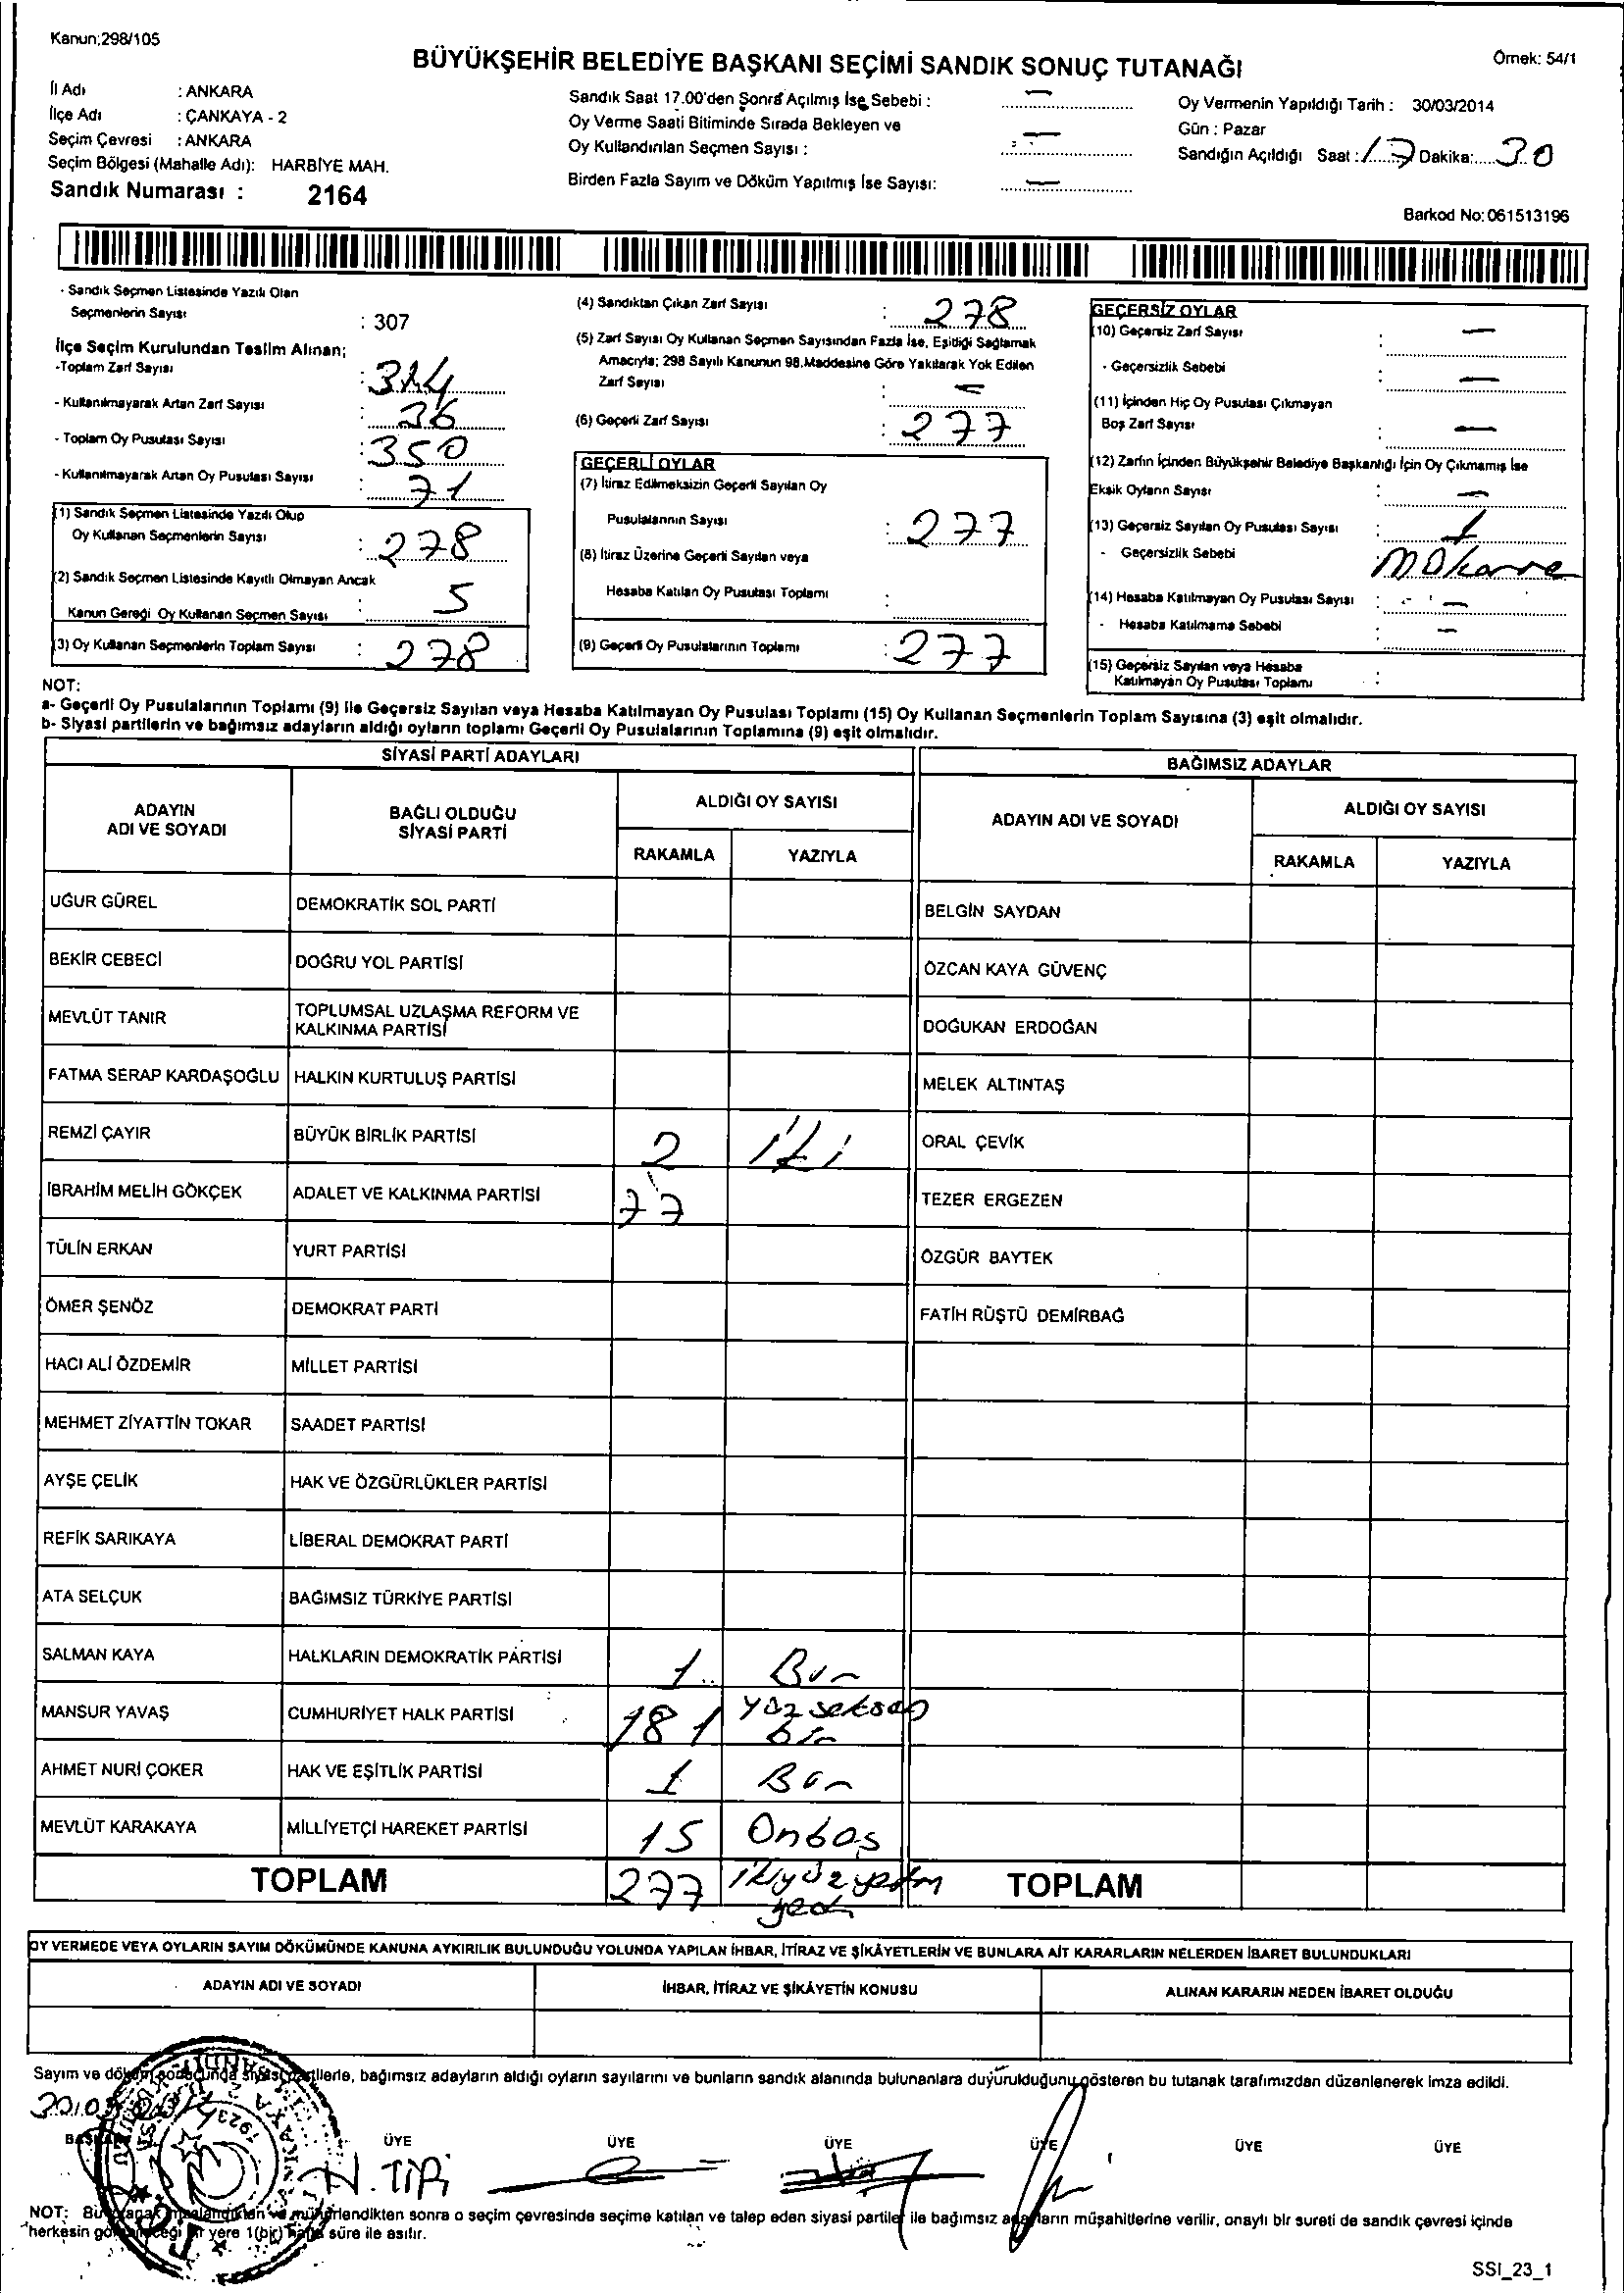 Kanun;298/105
BÜYÜKŞEHİR BELEDİYE BAŞKANI SEÇİMİ SANDIK SONUÇ TUTANAĞI
Örnek: 54/1
İl Adı : ANKARA
İlçe Adı : ÇANKAYA - 2
Seçim Çevresi : ANKARA
Seçim Bölgesi (Mahalle Adı): HARBİYE MAH.
Sandık Numarası : 2164
Sandık Saat 17.00'den Sonra Açılmış İse Sebebi : —
Oy Verme Saati Bitiminde Sırada Bekleyen ve
Oy Kullandırılan Seçmen Sayısı : —
Birden Fazla Sayım ve Döküm Yapılmış İse Sayısı: —
Oy Vermenin Yapıldığı Tarih : 30/03/2014
Gün : Pazar
Sandığın Açıldığı Saat : 17 Dakika: 30
Barkod No: 061513196
- Sandık Seçmen Listesinde Yazılı Olan
Seçmenlerin Sayısı : 307
İlçe Seçim Kurulundan Teslim Alınan;
-Toplam Zarf Sayısı : 314
- Kullanılmayarak Artan Zarf Sayısı : 36
- Toplam Oy Pusulası Sayısı : 350
- Kullanılmayarak Artan Oy Pusulası Sayısı : 71
(1) Sandık Seçmen Listesinde Yazılı Olup
Oy Kullanan Seçmenlerin Sayısı : 278
(2) Sandık Seçmen Listesinde Kayıtlı Olmayan Ancak
Kanun Gereği Oy Kullanan Seçmen Sayısı : 5
(3) Oy Kullanan Seçmenlerin Toplam Sayısı : 278
(4) Sandıktan Çıkan Zarf Sayısı : 278
(5) Zarf Sayısı Oy Kullanan Seçmen Sayısından Fazla İse, Eşitliği Sağlamak
Amacıyla; 298 Sayılı Kanunun 98.Maddesine Göre Yakılarak Yok Edilen
Zarf Sayısı : —
(6) Geçerli Zarf Sayısı : 277
GEÇERLİ OYLAR
(7) İtiraz Edilmeksizin Geçerli Sayılan Oy
Pusulalarının Sayısı : 277
(8) İtiraz Üzerine Geçerli Sayılan veya
Hesaba Katılan Oy Pusulası Toplamı :
(9) Geçerli Oy Pusulalarının Toplamı : 277
GEÇERSİZ OYLAR
(10) Geçersiz Zarf Sayısı : —
- Geçersizlik Sebebi : —
(11) İçinden Hiç Oy Pusulası Çıkmayan
Boş Zarf Sayısı : —
(12) Zarfın İçinden Büyükşehir Belediye Başkanlığı İçin Oy Çıkmamış İse
Eksik Oyların Sayısı : —
(13) Geçersiz Sayılan Oy Pusulası Sayısı : 1
- Geçersizlik Sebebi
(14) Hesaba Katılmayan Oy Pusulası Sayısı : —
- Hesaba Katılmama Sebebi : —
(15) Geçersiz Sayılan veya Hesaba
Katılmayan Oy Pusulası Toplamı :
NOT:
a- Geçerli Oy Pusulalarının Toplamı (9) ile Geçersiz Sayılan veya Hesaba Katılmayan Oy Pusulası Toplamı (15) Oy Kullanan Seçmenlerin Toplam Sayısına (3) eşit olmalıdır.
b- Siyasi partilerin ve bağımsız adayların aldığı oyların toplamı Geçerli Oy Pusulalarının Toplamına (9) eşit olmalıdır.
SİYASİ PARTİ ADAYLARI BAĞIMSIZ ADAYLAR
ADAYIN ADI VE SOYADI BAĞLI OLDUĞU SİYASİ PARTİ ALDIĞI OY SAYISI ADAYIN ADI VE SOYADI ALDIĞI OY SAYISI
RAKAMLA YAZIYLA RAKAMLA YAZIYLA
UĞUR GÜREL DEMOKRATİK SOL PARTİ BELGİN SAYDAN
BEKİR CEBECİ DOĞRU YOL PARTİSİ ÖZCAN KAYA GÜVENÇ
MEVLÜT TANIR TOPLUMSAL UZLAŞMA REFORM VE KALKINMA PARTİSİ DOĞUKAN ERDOĞAN
FATMA SERAP KARDAŞOĞLU HALKIN KURTULUŞ PARTİSİ MELEK ALTINTAŞ
REMZİ ÇAYIR BÜYÜK BİRLİK PARTİSİ 2 iki ORAL ÇEVİK
İBRAHİM MELİH GÖKÇEK ADALET VE KALKINMA PARTİSİ 77 TEZER ERGEZEN
TÜLİN ERKAN YURT PARTİSİ ÖZGÜR BAYTEK
ÖMER ŞENÖZ DEMOKRAT PARTİ FATİH RÜŞTÜ DEMİRBAĞ
HACI ALİ ÖZDEMİR MİLLET PARTİSİ
MEHMET ZİYATTİN TOKAR SAADET PARTİSİ
AYŞE ÇELİK HAK VE ÖZGÜRLÜKLER PARTİSİ
REFİK SARIKAYA LİBERAL DEMOKRAT PARTİ
ATA SELÇUK BAĞIMSIZ TÜRKİYE PARTİSİ
SALMAN KAYA HALKLARIN DEMOKRATİK PARTİSİ 1 Bir
MANSUR YAVAŞ CUMHURİYET HALK PARTİSİ 181 yüzseksen bir
AHMET NURİ ÇOKER HAK VE EŞİTLİK PARTİSİ 1 Bir
MEVLÜT KARAKAYA MİLLİYETÇİ HAREKET PARTİSİ 15 Onbeş
TOPLAM 277 ikiyüzyetmiş yedi TOPLAM
OY VERMEDE VEYA OYLARIN SAYIM DÖKÜMÜNDE KANUNA AYKIRILIK BULUNDUĞU YOLUNDA YAPILAN İHBAR, İTİRAZ VE ŞİKÂYETLERİN VE BUNLARA AİT KARARLARIN NELERDEN İBARET BULUNDUKLARI
ADAYIN ADI VE SOYADI İHBAR, İTİRAZ VE ŞİKÂYETİN KONUSU ALINAN KARARIN NEDEN İBARET OLDUĞU
Sayım ve döküm sonucunda siyasi partilerle, bağımsız adayların aldığı oyların sayılarını ve bunların sandık alanında bulunanlara duyurulduğunu gösteren bu tutanak tarafımızdan düzenlenerek imza edildi.
30.03.2014
BAŞKAN ÜYE ÜYE ÜYE ÜYE ÜYE ÜYE
NOT: Bu tutanak imzalandıktan ve mühürlendikten sonra o seçim çevresinde seçime katılan ve talep eden siyasi partiler ile bağımsız adayların müşahitlerine verilir, onaylı bir sureti de sandık çevresi içinde
herkesin görebileceği bir yere 1(bir) hafta süre ile asılır.
SSI_23_1